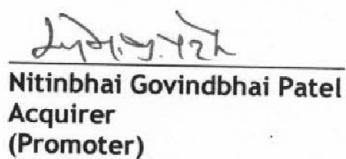 Nitinbhai Govindbhai Patel
Acquirer
(Promoter)